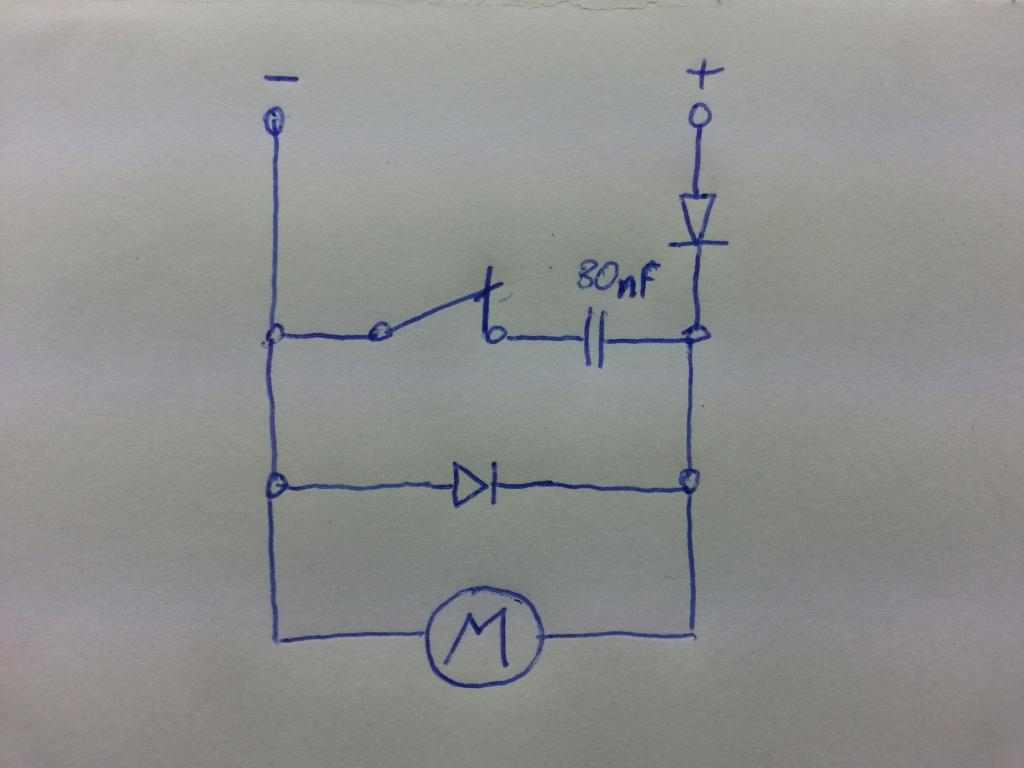 − +
80nF
M